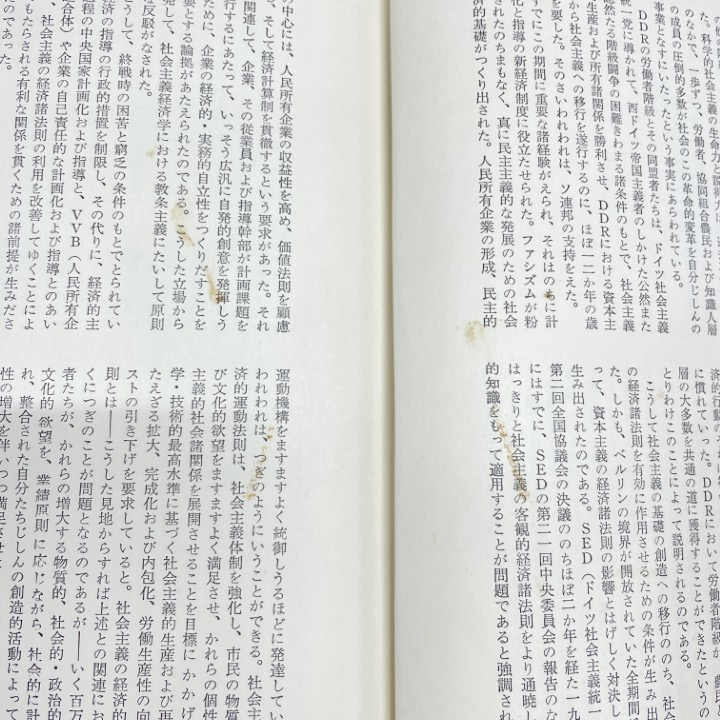 た。科学的社会主義の生命力と
のなかで、一歩ずつ、労働者、協同組合農民および知識人層
の成員の圧倒的多数が社会のこの革命的変革を自分じしんの
事業となすにいたったという事実にあらわれている。
DDRの労働者階級とその同盟者たちは、ドイツ社会主義
統一党に導かれて、西ドイツ帝国主義者のしかけた公然また
然たる階級闘争の困難きわまる諸条件のもとで、社会主義
生産および所有諸関係を勝利させ、DDRにおける資本主
から社会主義への移行を遂行するのに、ほぼ一二か年の歳
を要した。そのさいわれわれは、ソ連邦の支持をえた。
すでにこの期間に重要な諸経験がえられ、それはのちに計
化と指導の新経済制度に役立たせられた。ファシズムが粉
されたのちまもなく、真に民主主義的な発展のための社会
済的基礎がつくり出された。人民所有企業の形成、民主的
済的行動の
に慣れていった。DDRにおいて労働者階級が、農民と
層の大多数を共通の道に獲得することができたというの
とりわけこのことによって説明されるのである。
こうして社会主義の基礎の創造への移行ののち、社会
の経済諸法則を有効に作用させるための条件が生み出
た。しかも、ベルリンの境界が開放されていた全期間
って、資本主義の経済諸法則の影響とはげしく対決し
生み出されたのである。SED（ドイツ社会主義統一
第二回全国協議会の決議ののちほぼ二か年を経た一九
にはすでに、SEDの第二一回中央委員会の報告のな
はっきりと社会主義の客観的経済諸法則をより通暁し
的知識をもって適用することが問題であると強調され
の中心には、人民所有企業の収益性を高め、価値法則を顧慮
、そして経済計算制を貫徹するという要求があった。それ
関連して、企業、その従業員および指導幹部が計画課題を
行するにあたって、いっそう広汎に自発的創意を発揮しう
ために、企業の経済的・実務的自立性をつくりだすことを
要とする論拠があたえられたのである。こうした立場から
発して、社会主義経済学における教条主義にたいして原則
な反駁がなされた。
こうして、終戦時の困苦と窮乏の条件のもとでとられてい
済の指導の行政的措置を制限し、その代りに、経済的主
程の中央国家計画化および指導と、VVB（人民所有企
合体）や企業の自己責任的な計画化および指導とのあい
、社会主義の経済諸法則の利用を改善してゆくことによ
もたらされる有利な関係を貫くための諸前提が生みださ
のであった。
運動機構をますますよく統御しうるほどに発達してい
われわれは、つぎのようにいうことができる。社会主
済的運動法則は、社会主義体制を強化し、市民の物質
び文化的欲望をますますよく満足させ、かれらの個性
主義的社会諸関係を展開させることを目標にかかげ
学・技術的最高水準に基づく社会主義的生産および再
たえざる拡大、完成化および内包化、労働生産性の向
ストの引き下げを要求していると。社会主義の経済的
則とは――こうした見地からすれば上述との関連にお
くにつぎのことが問題となるのであるが――いく百万
者たちが、かれらの増大する物質的、社会的・政治的
文化的欲望を、業績原則に応じながら、社会的に計
れ、整合された自分たちじしんの創造的活動によって
性の増大を伴いつつ満足させ